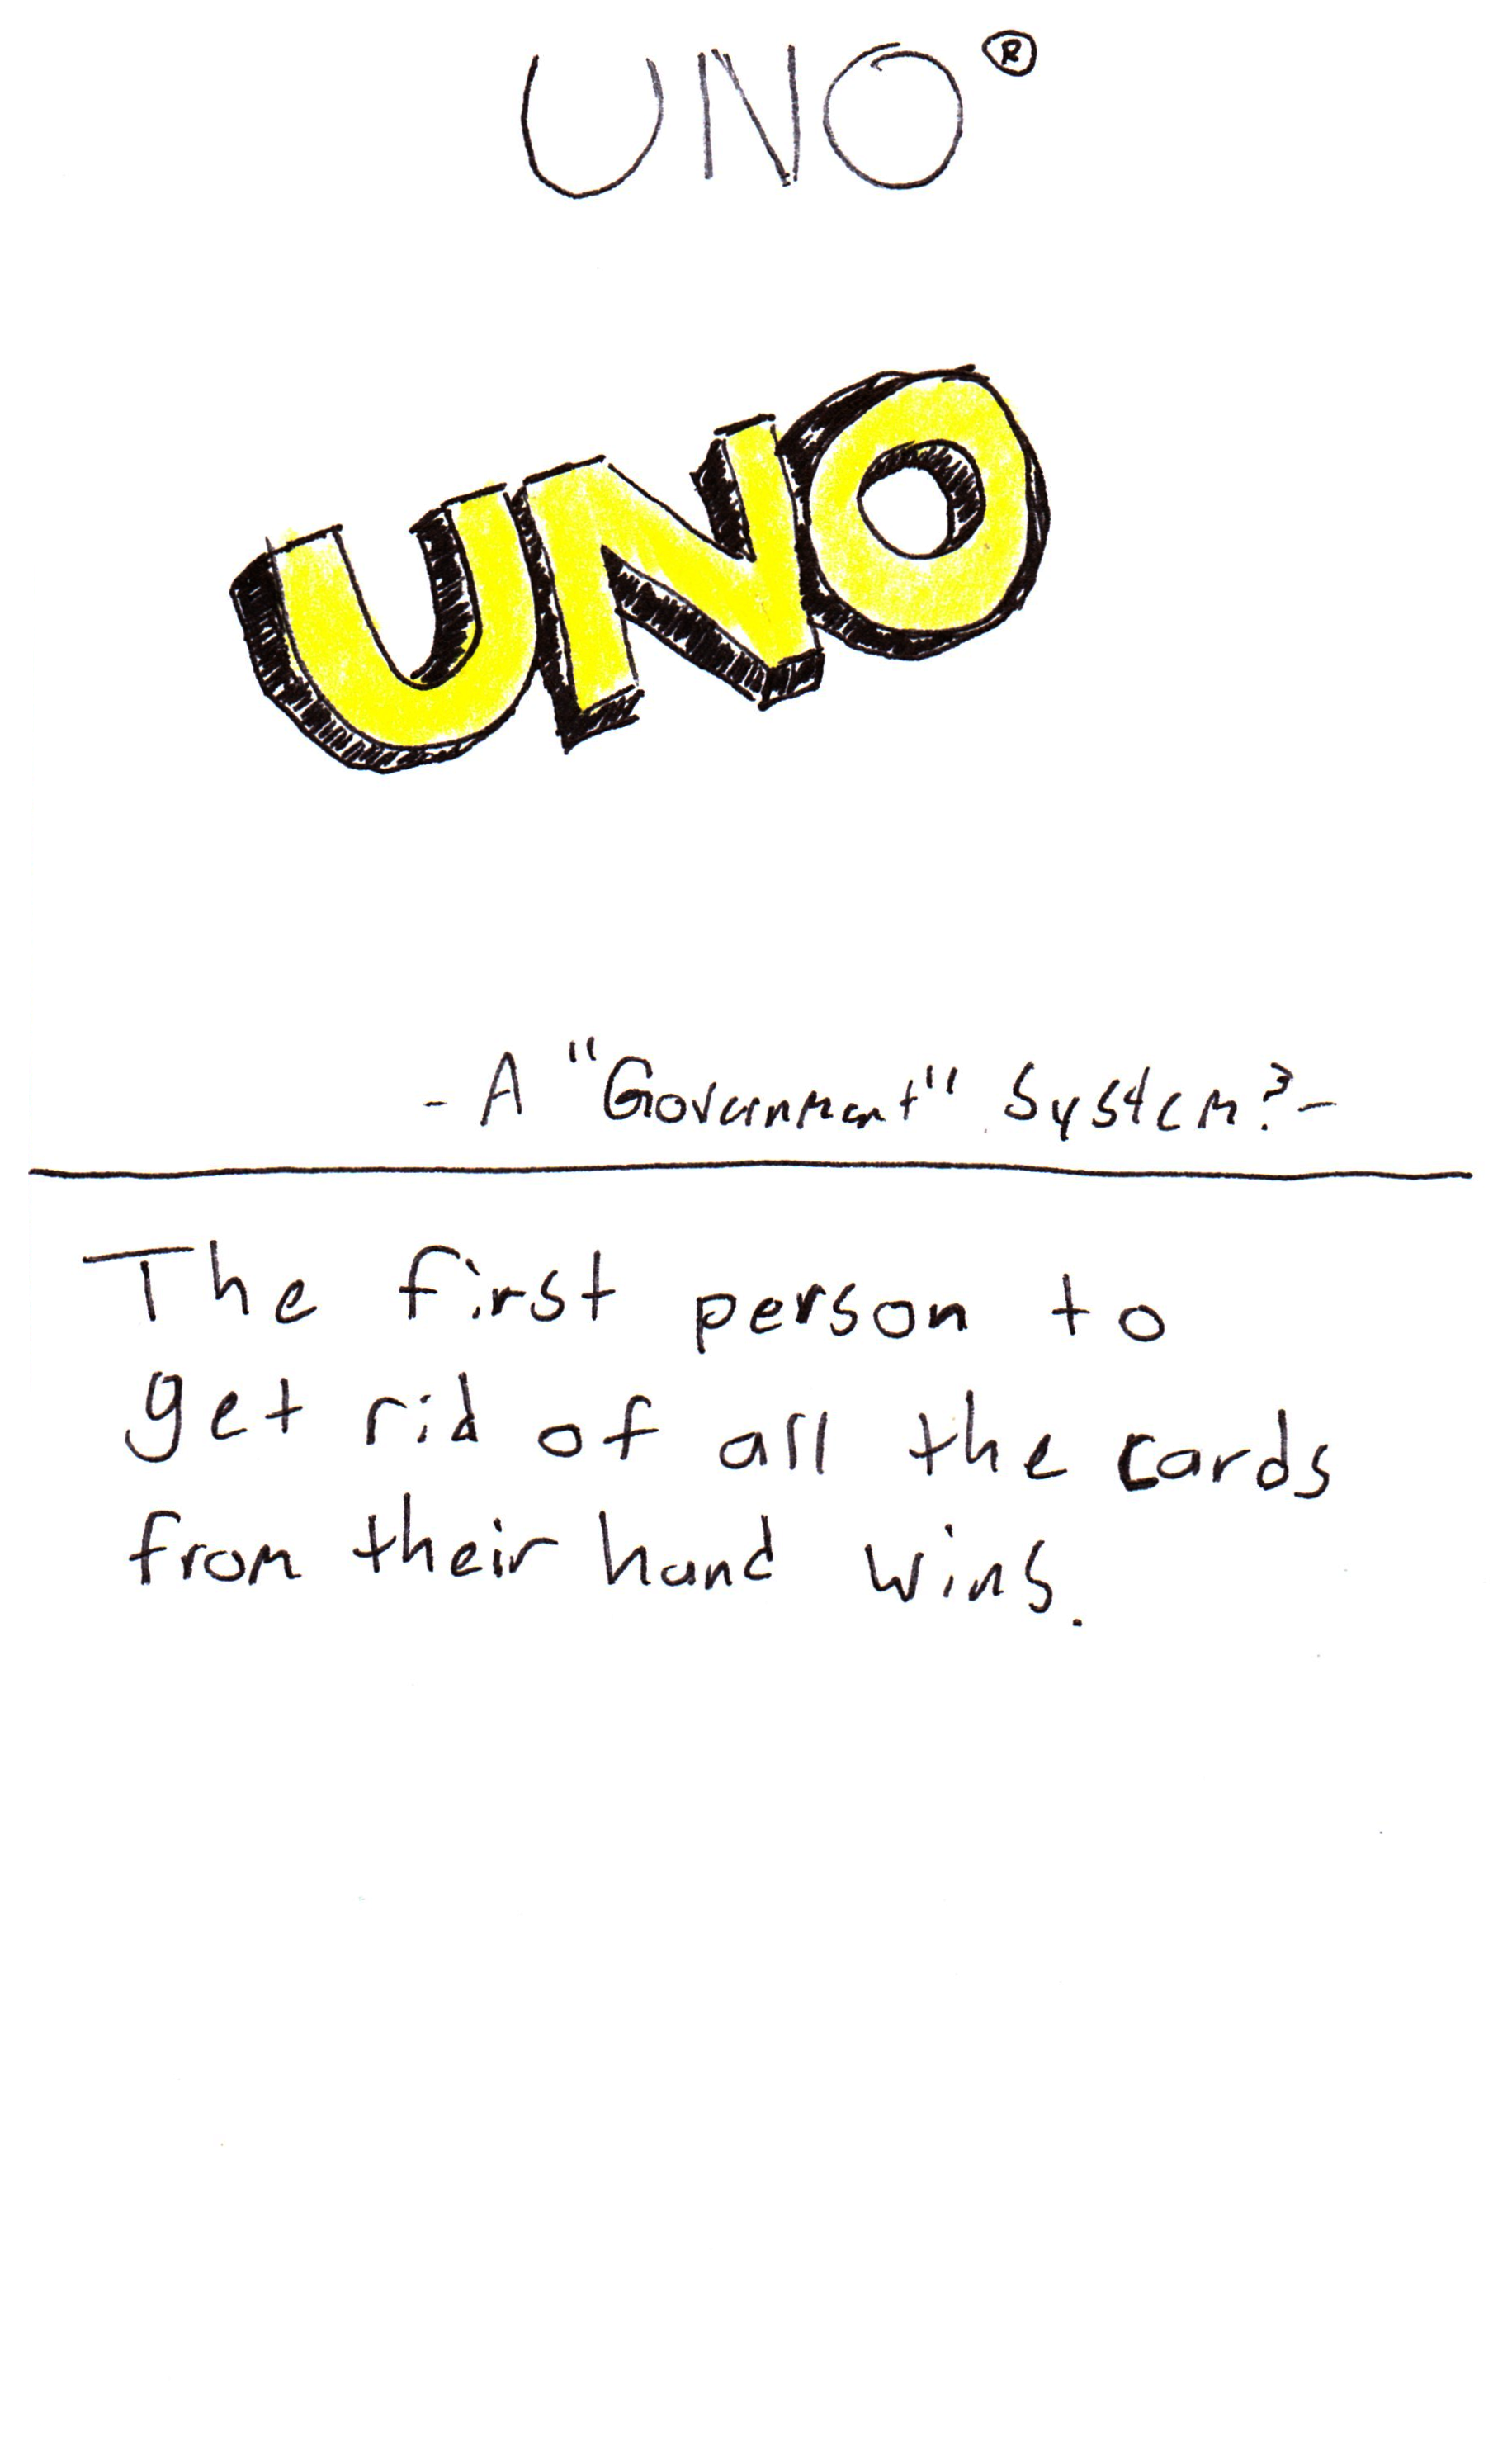 UNO®
UNO
- A "Government" System? -
The first person to
get rid of all the cards
from their hand wins.